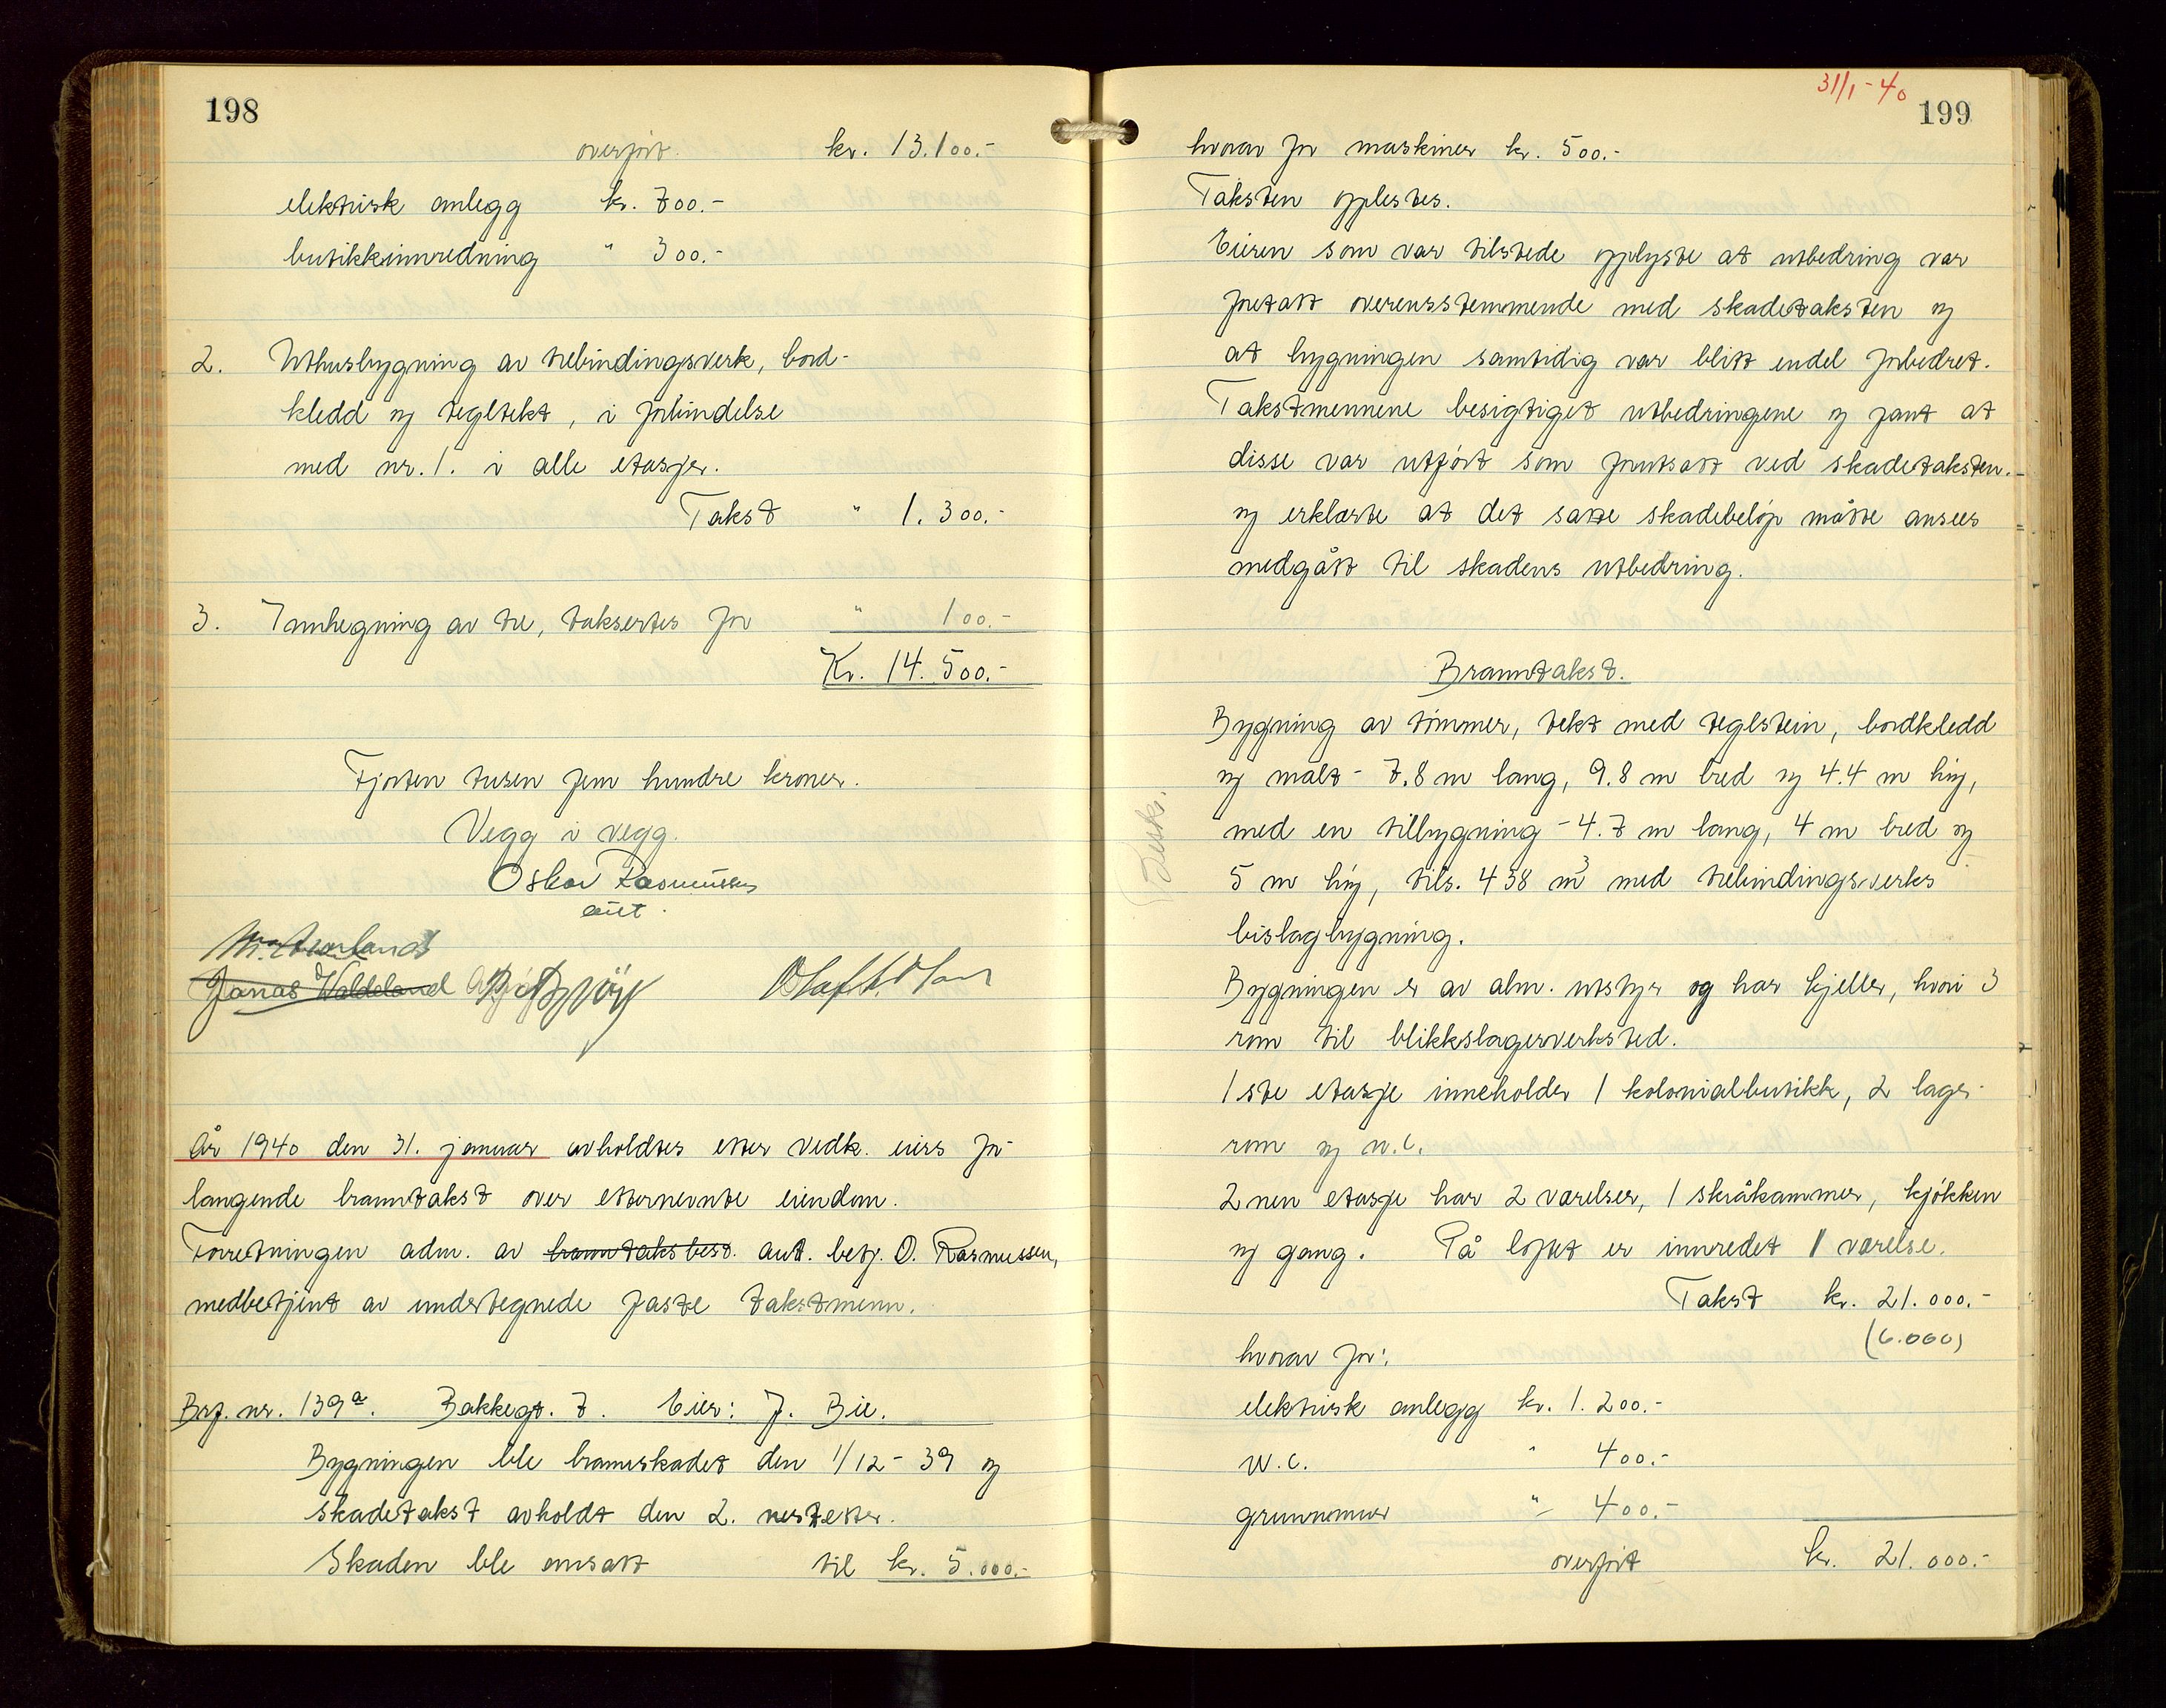 198
overført. kr. 13.100.-
elektrisk anlegg kr. 700.-
butikkinnredning " 300.-
2. Uthusbygning av trebindingsverk, bord-
kledd og tegltekt, i forbindelse
med nr. 1. i alle etasjer.
Takst " 1.300.-
3. Innhegning av tre, taksertes for " 100.-
Kr. 14.500.-
Fjorten tusen fem hundre kroner.
Vegg i vegg.
Oskar Rasmussen
aut.
Jonas Valdeland
År 1940 den 31. januar avholdtes etter vedk. eiers for-
langende branntakst over etternevnte eiendom.
Forretningen adm. av branntaksbest. aut. betj. O. Rasmussen,
medbetjent av undertegnede faste takstmenn.
Brf. nr. 139a. Bakkegt. 7. Eier: J. Bie.
Bygningen ble brannskadet den 1/12 - 39 og
skadetakst avholdt den 2. nestetter.
Skaden ble ansatt til kr. 5.000.-
31/1 - 40
199
hvorav for maskiner kr. 500.-
Taksten opplestes.
Eieren som var tilstede opplyste at utbedring var
foretatt overensstemmende med skadetaksten og
at bygningen samtidig var blitt endel forbedret.
Takstmennene besigtiget utbedringene og fant at
disse var utført som forutsatt ved skadetaksten.-
og erklærte at det satte skadebeløp måtte ansees
medgått til skadens utbedring.
Branntakst.
Bygning av tømmer, tekt med teglstein, bordkledd
og malt - 7.8 m lang, 9.8 m bred og 4.4 m høy,
med en tilbygning - 4.7 m lang, 4 m bred og
5 m høy, tils. 438 m3 med trebindingsverks
bislagbygning.
Bygningen er av alm. utstyr og har kjeller, hvori 3
rom til blikkslagerverksted.
1ste etasje inneholder 1 kolonialbutikk, 2 lager-
rom og w.c.
2nen etasje har 2 værelser, 1 skråkammer, kjøkken
og gang. På loftet er innredet 1 værelse.
Takst kr. 21.000.-
(6.000)
hvorav for:
elektrisk anlegg kr. 1.200.-
w.c. " 400.-
grunnmur " 400.-
overført kr. 21.000.-